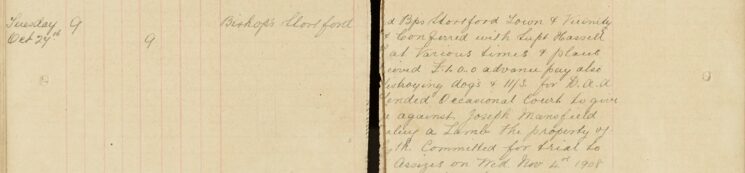 Tuesday 9 Bishop's Stortford
Oct 27th 9
d Bps Stortford Town & Vicinity
& Conferred with Supt Hassell
at Various times & places
eived £1.0.0 advance pay also
estroying dogs & 11/3 for D.A.A
tended Occasional Court to give
e against Joseph Mansfield
aling a Lamb the property of
yth. Committed for trial to
Assizes on Wed Nov 4th 1908